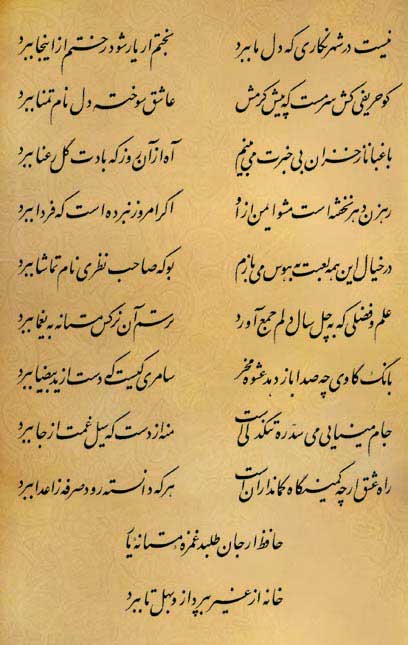 نیست در شهر نگاری که دل ما ببرد بختم ار یار شود رختم از اینجا ببرد
کو حریفی کش سرمست که پیش کرمش عاشق سوخته دل نام تمنا ببرد
باغبانا ز خزان بی خبرت می بینم آه از آن روز که بادت گل رعنا ببرد
رهزن دهر نخفته است مشو ایمن از او اگر امروز نبرده است که فردا ببرد
در خیال این همه لعبت به هوس می بازم بو که صاحب نظری نام تماشا ببرد
علم و فضلی که به چل سال دلم جمع آورد ترسم آن نرگس مستانه به یغما ببرد
بانگ گاوی چه صدا باز دهد عشوه مخر سامری کیست که دست از ید بیضا ببرد
جام مینایی می سد ره تنگدلی است منه از دست که سیل غمت از جا ببرد
راه عشق ار چه کمینگاه کمانداران است هر که دانسته رود صرفه ز اعدا ببرد
حافظ ار جان طلبد غمزه مستانه یار
خانه از غیر بپرداز و بهل تا ببرد